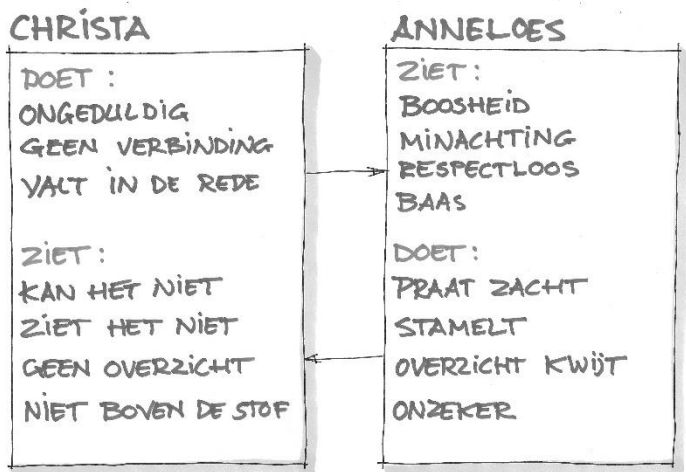 CHRISTA
DOET :
ONGEDULDIG
GEEN VERBINDING
VALT IN DE REDE
ZIET :
KAN HET NIET
ZIET HET NIET
GEEN OVERZICHT
NIET BOVEN DE STOF
ANNELOES
ZIET :
BOOSHEID
MINACHTING
RESPECTLOOS
BAAS
DOET :
PRAAT ZACHT
STAMELT
OVERZICHT KWIJT
ONZEKER